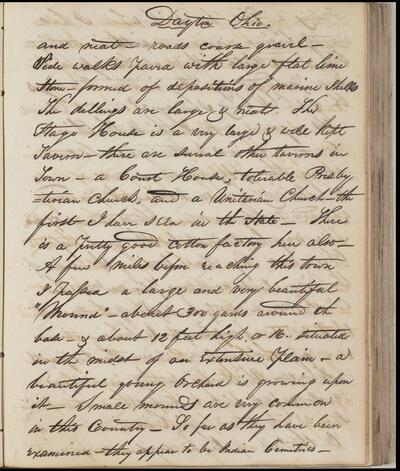 Dayton Ohio.
and neat – roads coarse gravel –
Side walks paved with large flat lime
Stone – formed of depositions of marine Shells
The dellings are large & neat. The
Stage House is a very large & well kept
Tavern – there are several other taverns in
Town – a Court House, tolerable Presby
=terian Church, and a Unitarian Church – the
first I have seen in the State – There
is a pretty good cotton factory here also –
A few miles before reaching this town
I passed a large and very beautiful
"Mound" – about 300 yards around the
base – & about 12 feet high, or 16. situated
in the midst of an Extensive plain – a
beautiful young Orchard is growing upon
it – Small mounds are very common
in this Country – So far as they have been
examined – they appear to be Indian Cemetries –